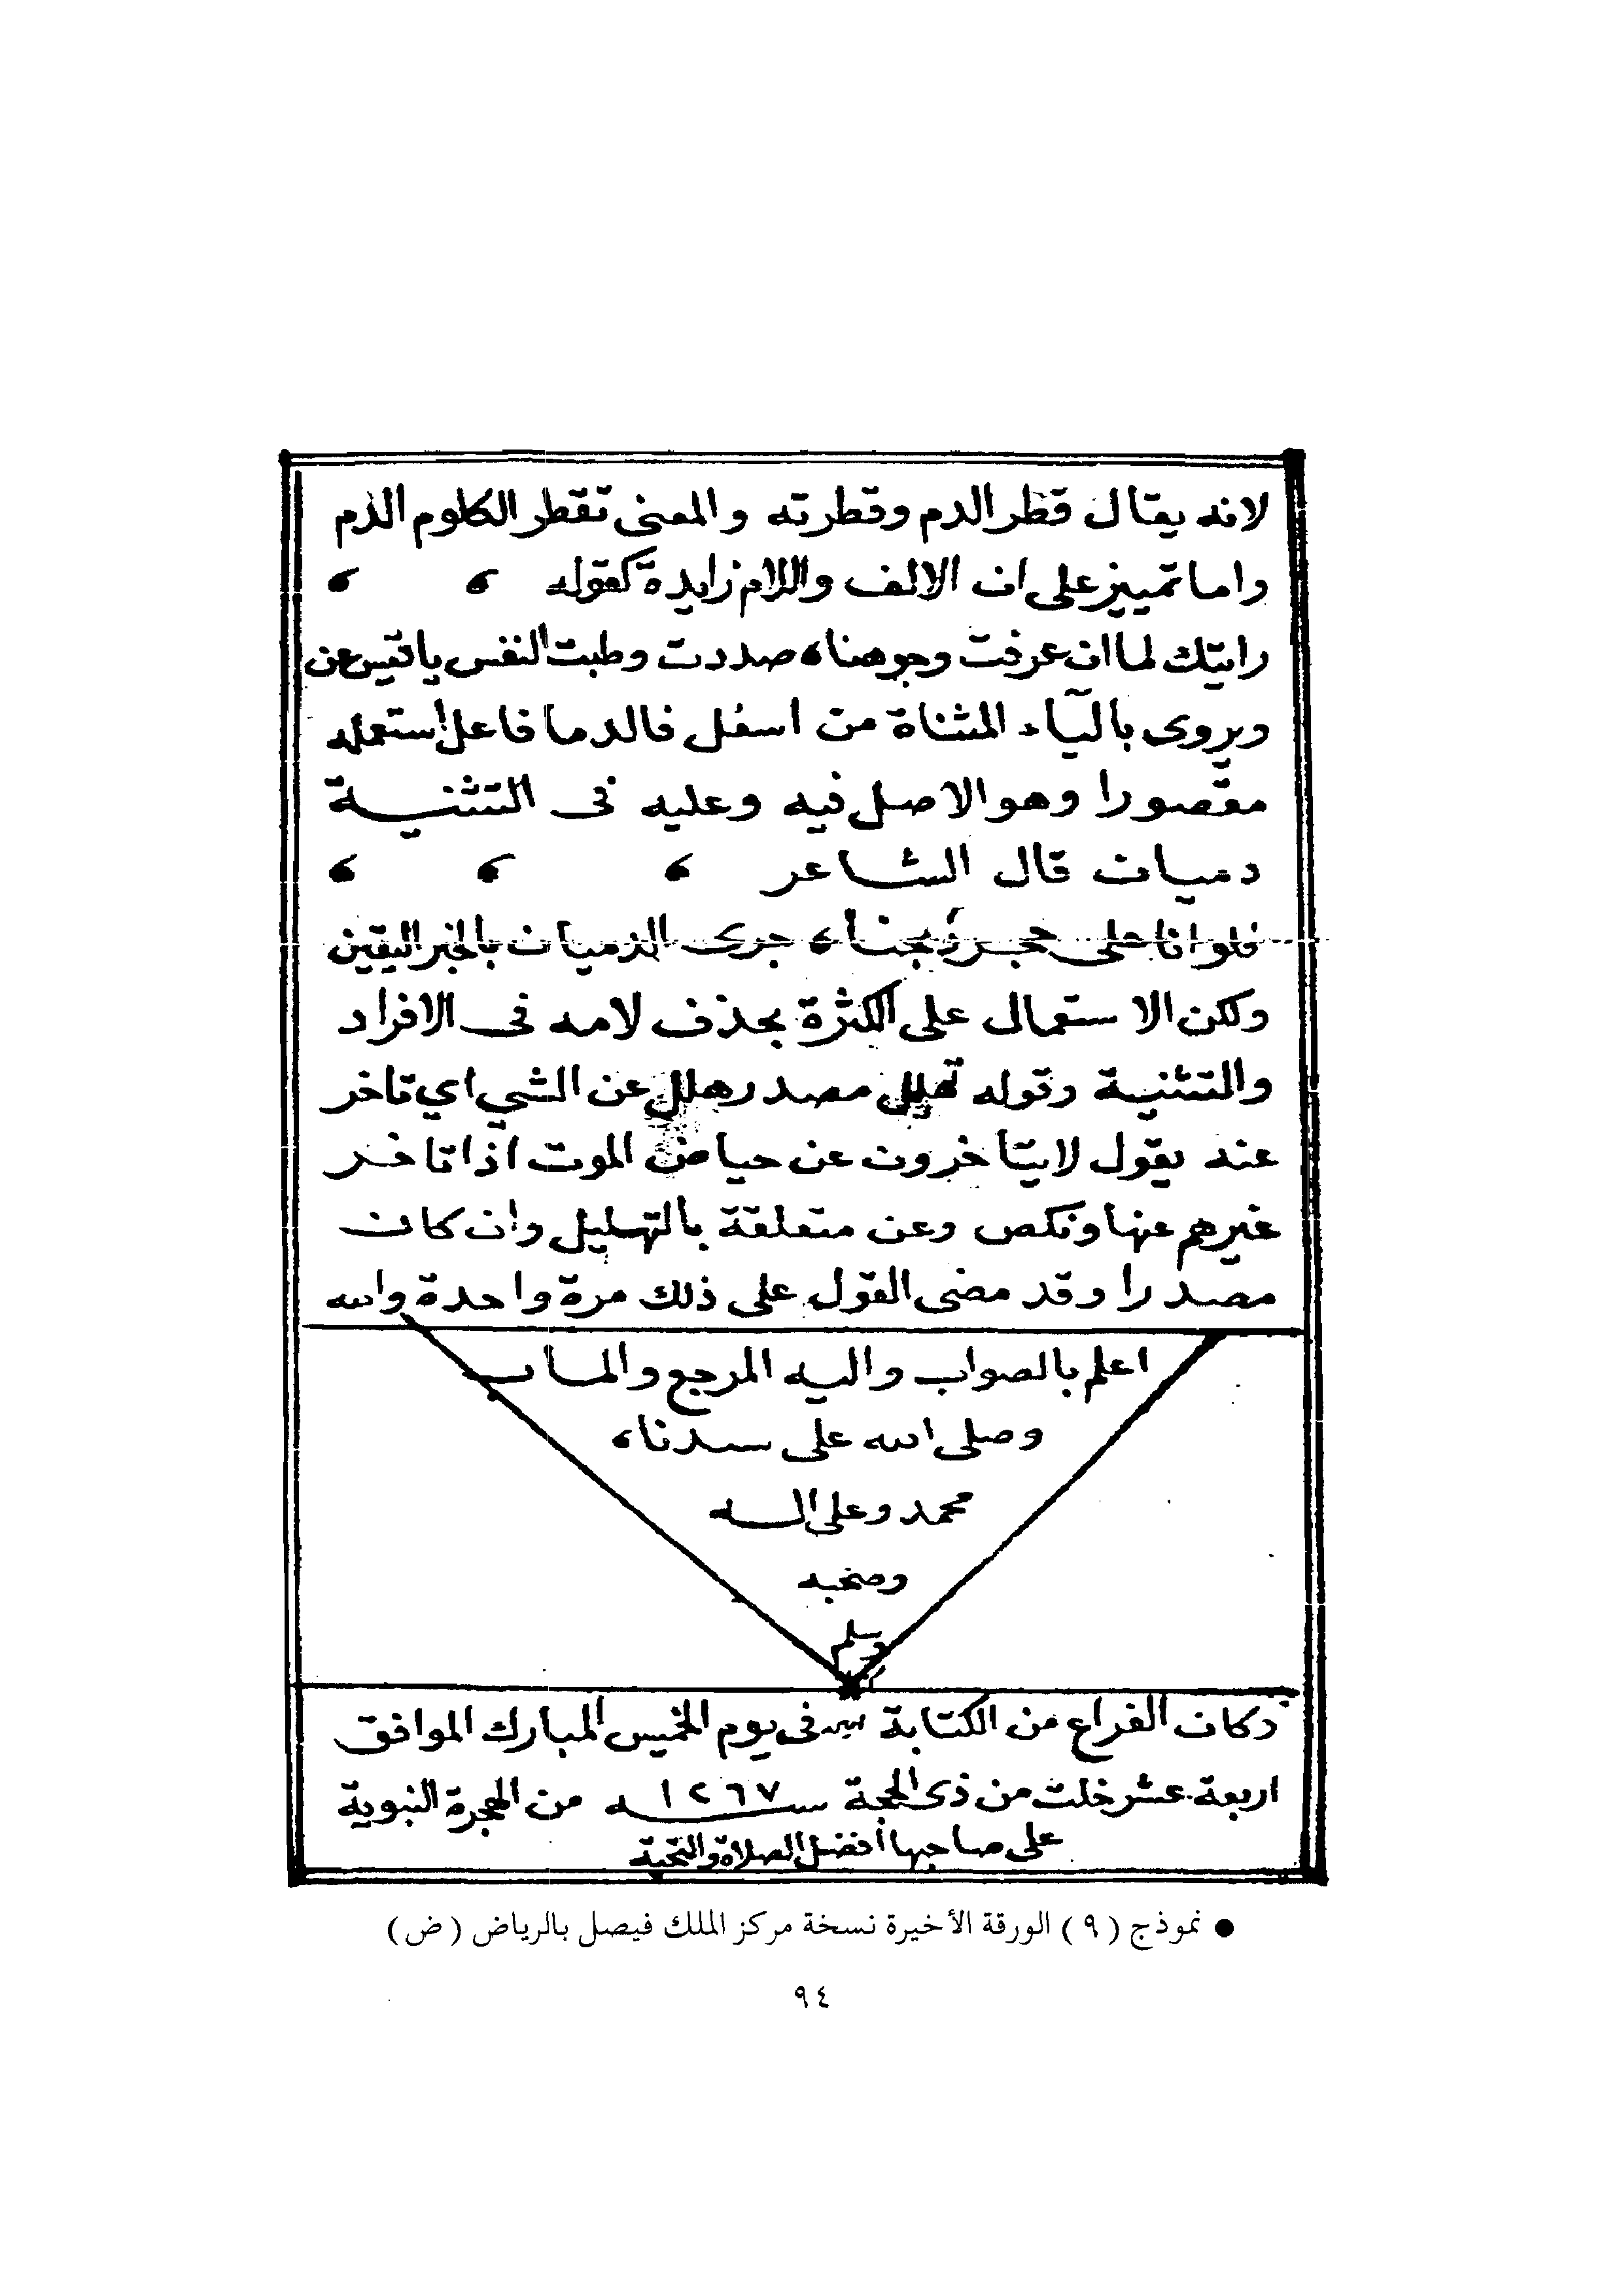 لانه يقال قطر الدم وقطرته والمعنى تقطر الكلوم الدم
واما تمييز على ان الالف واللام زايدة كقوله ، ،
رايتك لما ان عرفت وجوهنا ، صددت وطبت النفس ياقيس عن
ويروى بالياء المثناة من اسفل فالدما فاعل استعمله
مقصورا وهو الاصل فيه وعليه فى التثنية
دميان قال الشاعر ، ، ،
فلو انا على حجر ذبحنا ، جرى الدميان بالخبر اليقين
ولكن الاستعمال على الكثرة بحذف لامه فى الافراد
والتثنية وقوله تهليل مصدر هلل عن الشي اي تاخر
عنه يقول لايتاخرون عن حياض الموت اذا تاخر
غيرهم عنها ونكص وعن متعلقة بالتهليل وان كان
مصدرا وقد مضى القول على ذلك مرة واحدة والله
اعلم بالصواب واليه المرجع والماب
وصلى الله على سيدنا ،
محمد وعلى اله
وصحبه
وسلم
وكان الفراغ من الكتابة فى يوم الخميس المبارك الموافق
اربعة عشر خلت من ذى الحجة سنه ١٢٦٧ من الهجرة النبوية
على صاحبها أفضل الصلاة والتحية
● نموذج (٩) الورقة الأخيرة نسخة مركز الملك فيصل بالرياض (ض)
٩٤